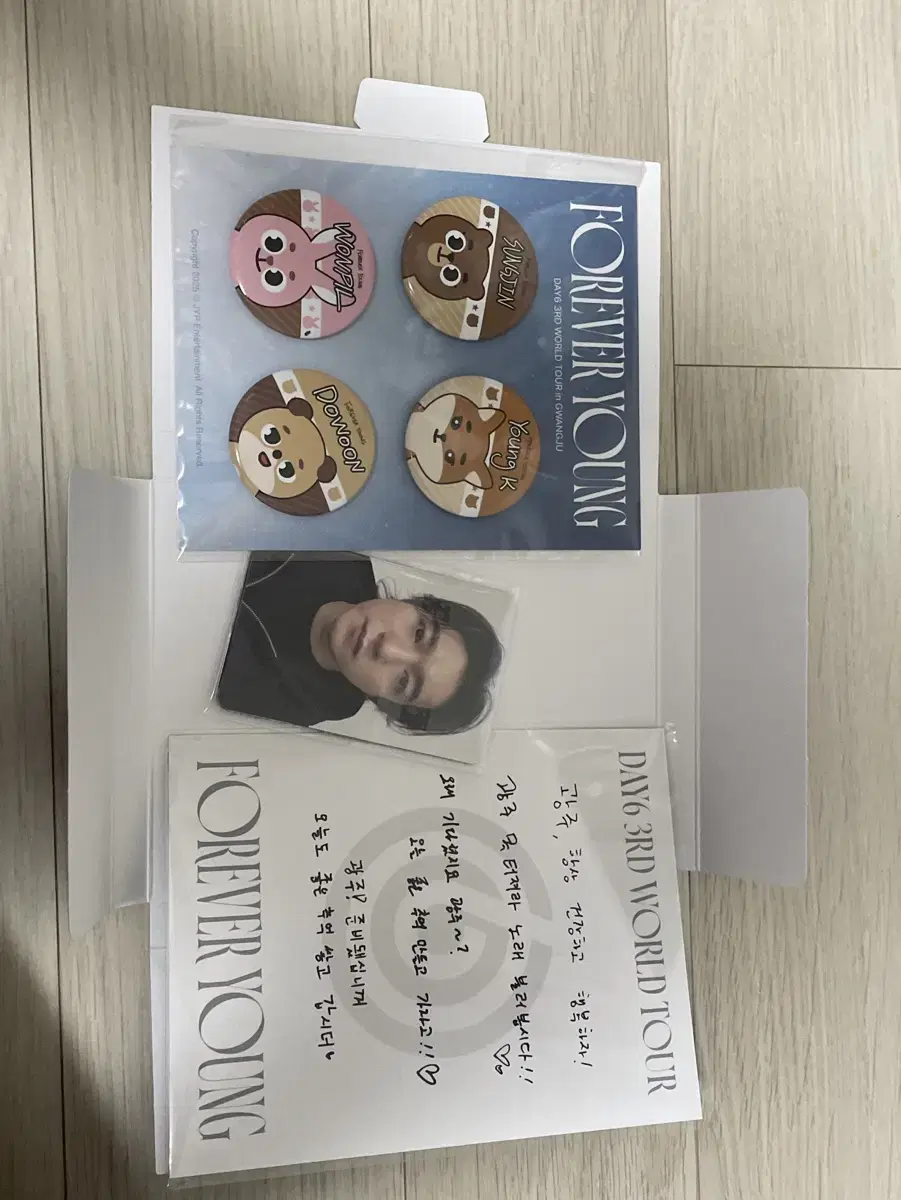 FOREVER YOUNG
DAY6 3RD WORLD TOUR in GWANGJU
SUNGJIN
Young K
WONPIL
DOWOON
Copyright 2025 © JYP Entertainment. All Rights Reserved.
DAY6 3RD WORLD TOUR
광주, 항상 건강하고 행복하자!
광주 목 터져라 노래 불러봅시다!!
오래 기다렸지요 광주~?
오늘 추억 만들고 가자고!!
광주? 준비됐십니까
오늘도 좋은 추억 쌓고 갑시더
FOREVER YOUNG